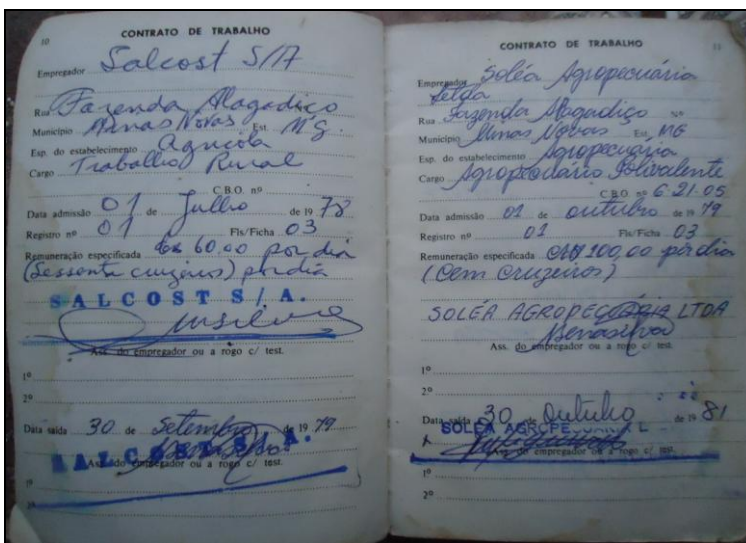 10
CONTRATO DE TRABALHO
Empregador Salcost S/A
Rua Fazenda Alagadiço
Município Minas Novas Est. M G.
Esp. do estabelecimento Agricola
Cargo Trabalho Rural
C.B.O. nº
Data admissão 01 de Julho de 1978
Registro nº 01 Fls/Ficha 03
Remuneração especificada 60,00 por dia
(Sessenta cruzeiros) por dia
SALCOST S/A.
Ass. do empregador ou a rogo c/ test.
1º
2º
Data saída 30 de Setembro de 1979
SALCOST S/A.
Ass. do empregador ou a rogo c/ test.
1º
2º
11
CONTRATO DE TRABALHO
Empregador Soléa Agropecuária
Ltda
Rua Fazenda Alagadiço Nº
Município Minas Novas Est. MG
Esp. do estabelecimento Agropecuária
Cargo Agropecuário Polivalente
C.B.O. nº 6.21.05
Data admissão 01 de outubro de 1979
Registro nº 01 Fls/Ficha 03
Remuneração especificada CR$ 100,00 por dia
(Cem Cruzeiros)
SOLÉA AGROPECUÁRIA LTDA
Ass. do empregador ou a rogo c/ test.
1º
2º
Data saída 30 de Outubro de 1981
SOLEA AGROPECUARIA L
Ass. do empregador ou a rogo c/ test.
1º
2º